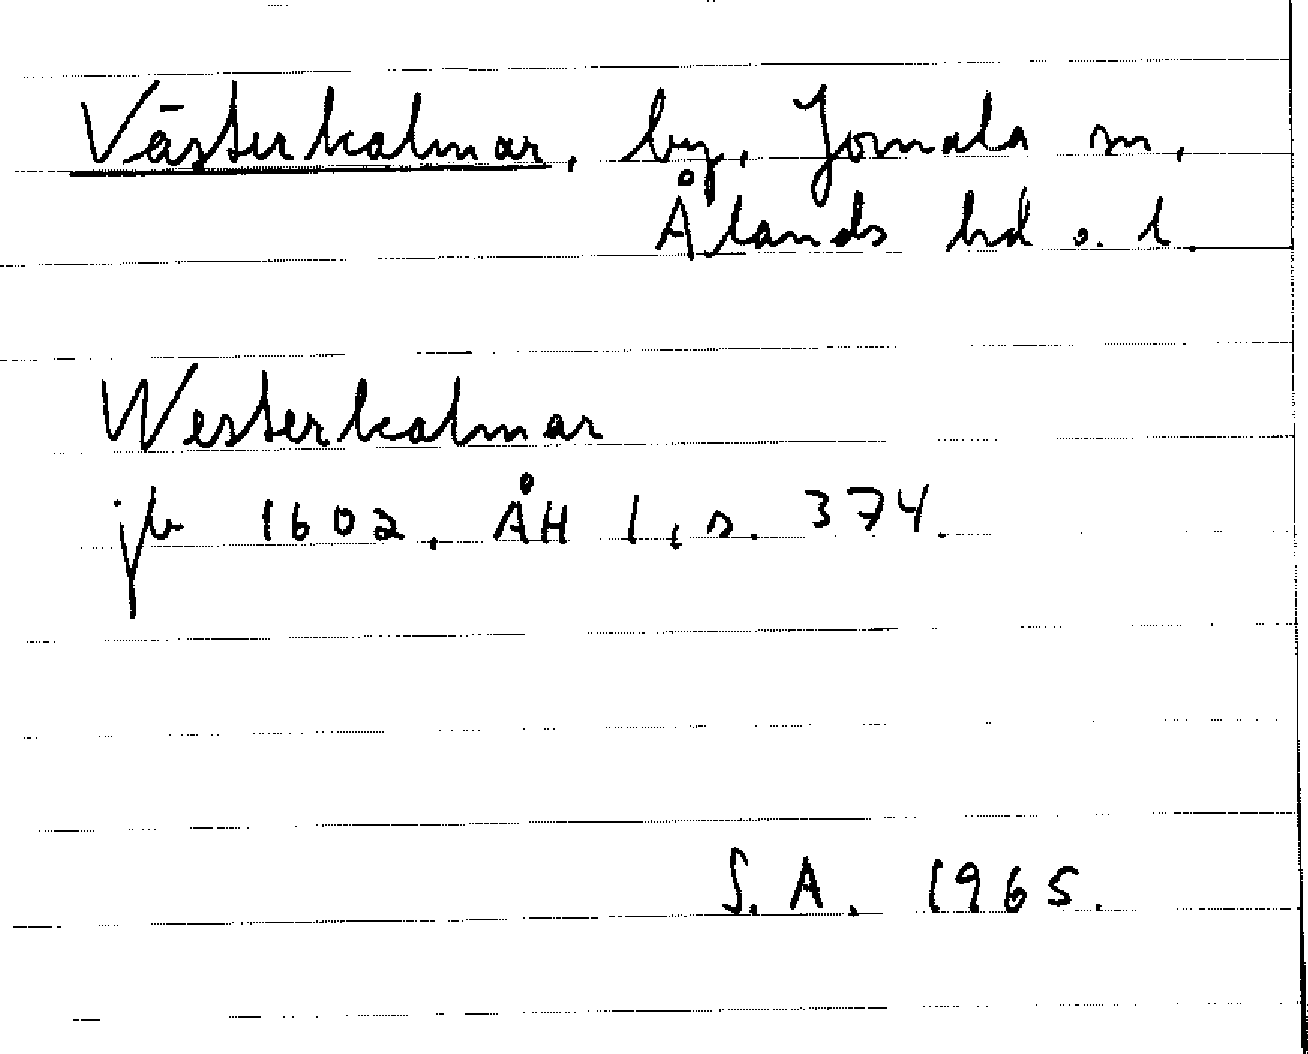 Västerkalmar, by, Jomala sn,
Ålands hd o. l.
Westerkalmar
jb 1602, ÅH 1, s. 374.
S.A. 1965.